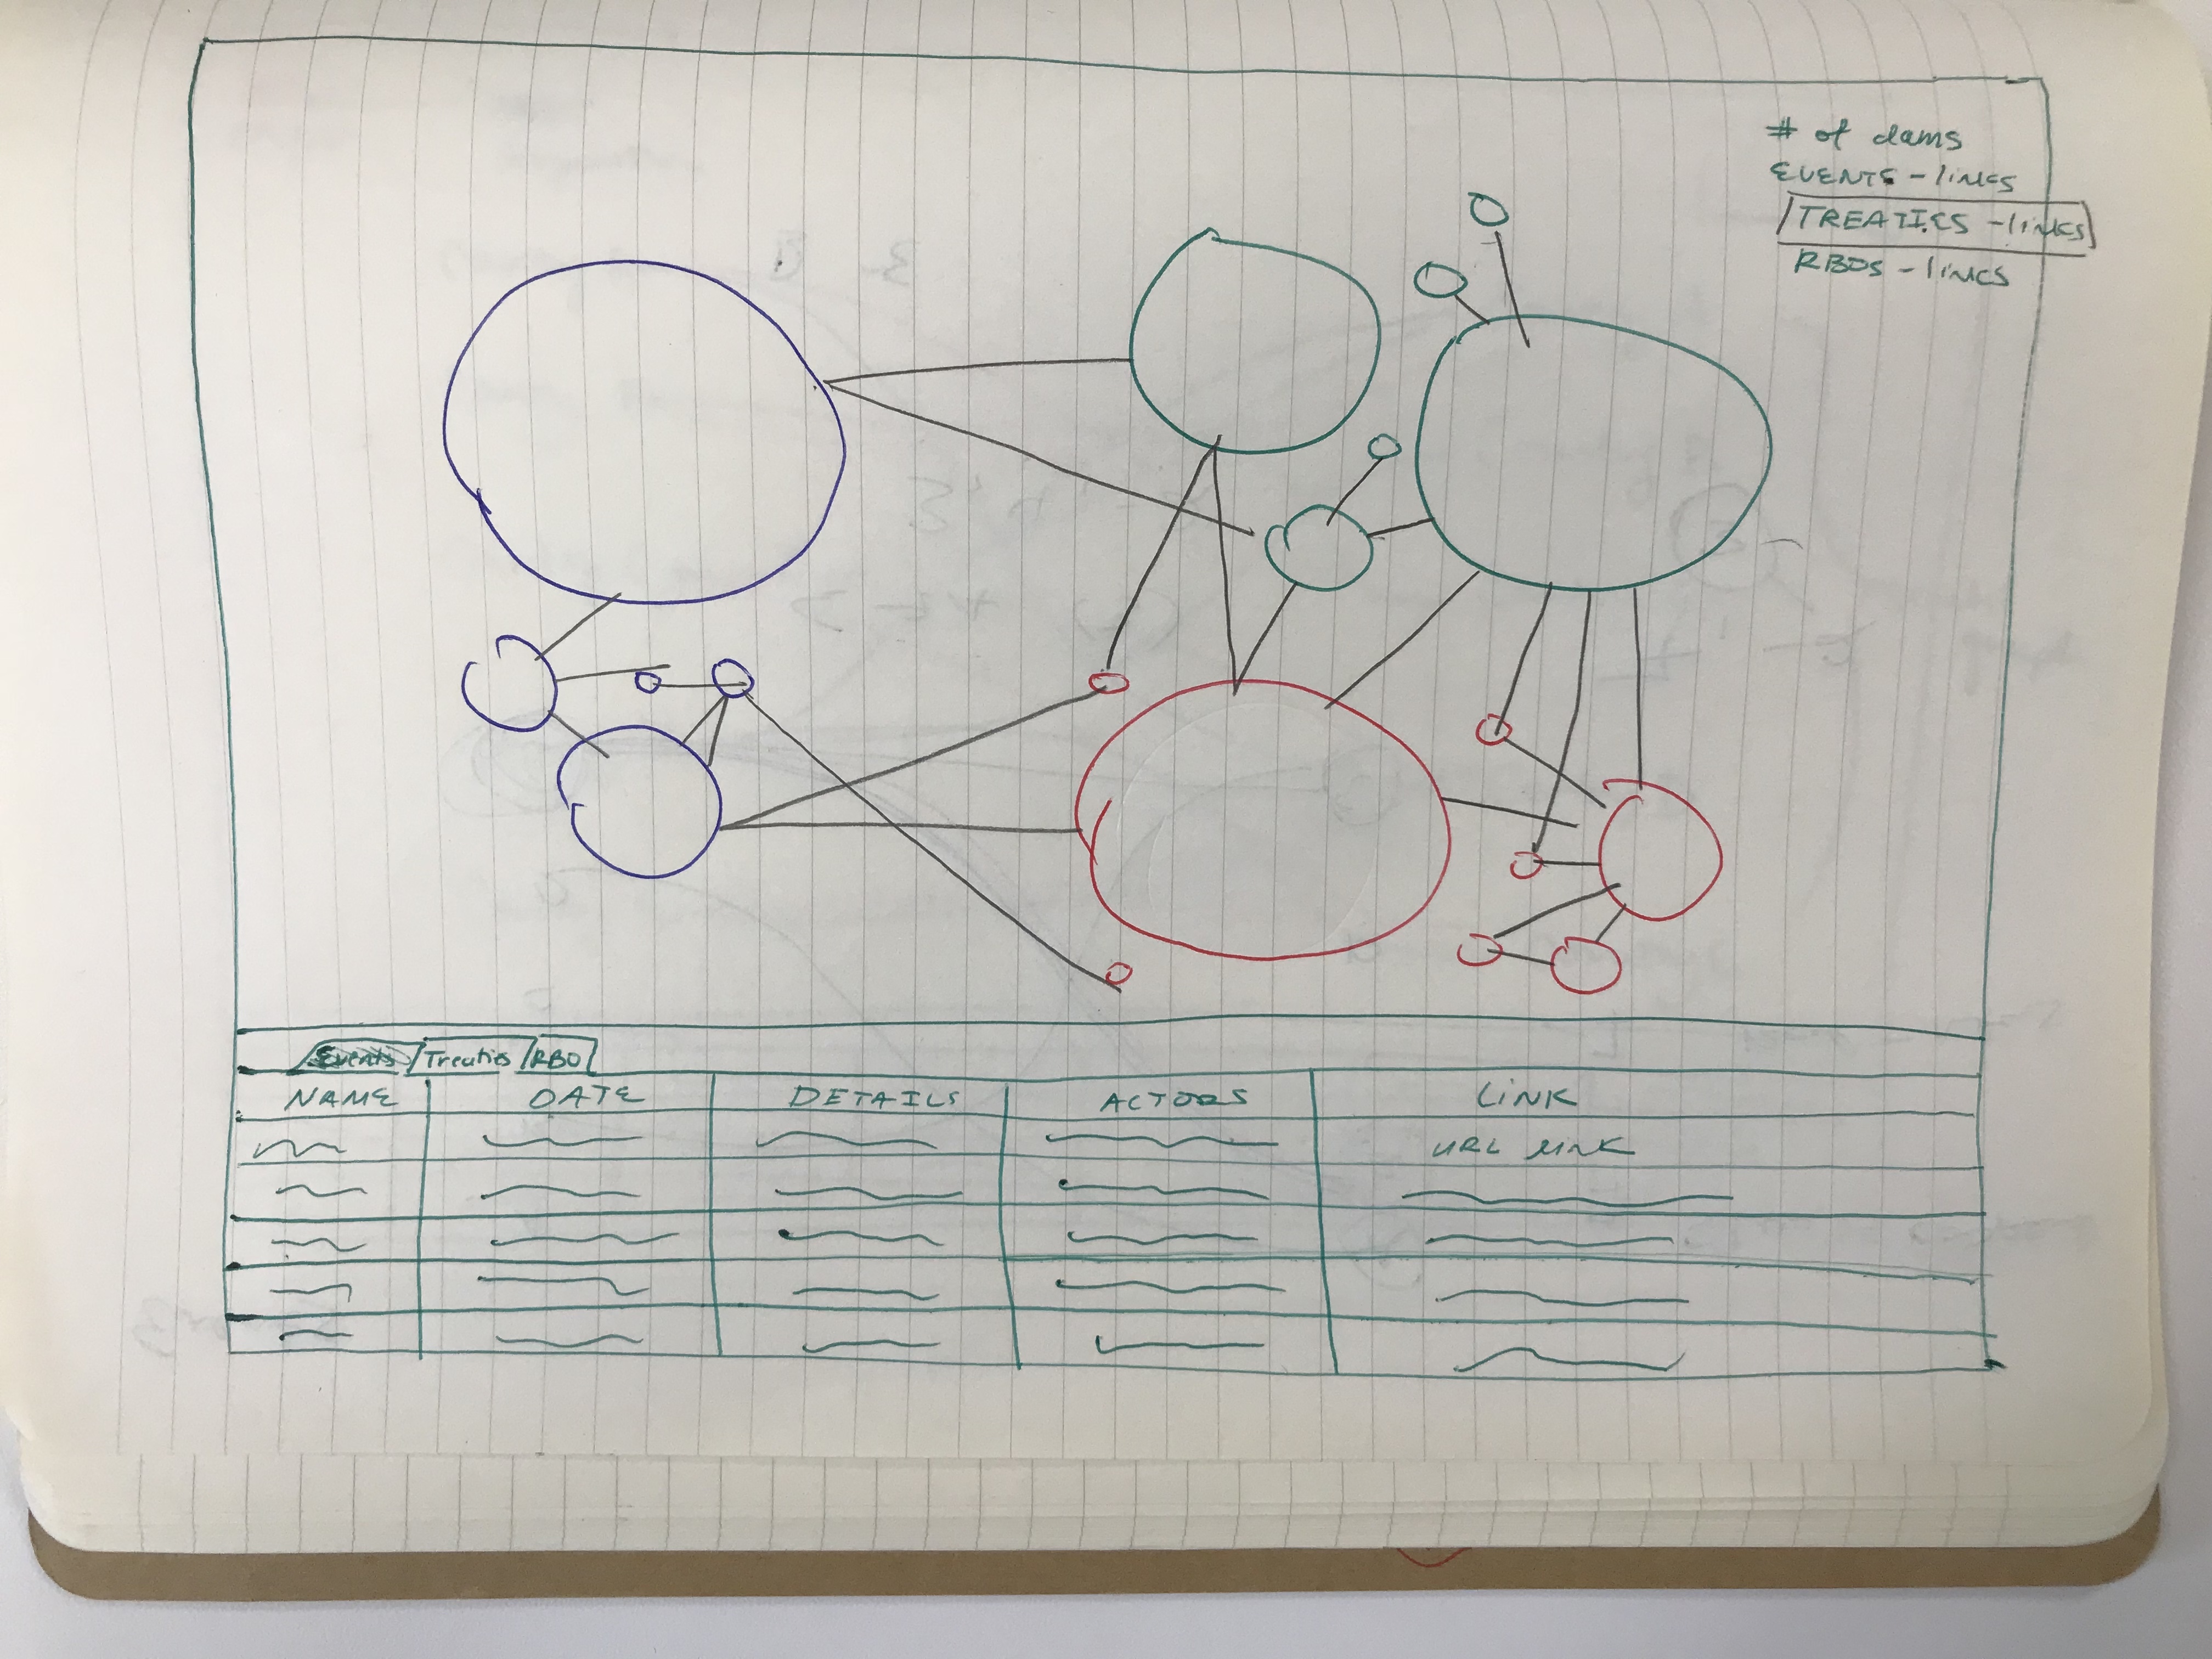 # of dams
EVENTS - links
TREATIES - links
RBOS - links
Events Treaties RBO
NAME DATE DETAILS ACTORS LINK
URL LINK